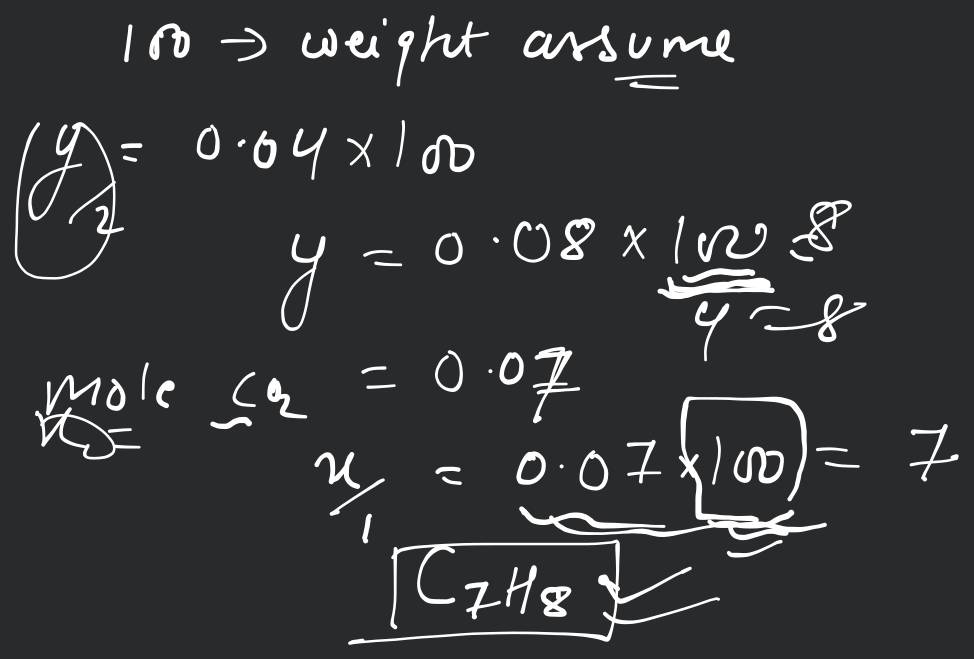 100 → weight assume
y/2 = 0.04 × 100
y = 0.08 × 100 = 8
y = 8
mole = 0.07
x/1 = 0.07 × 100 = 7
C7H8